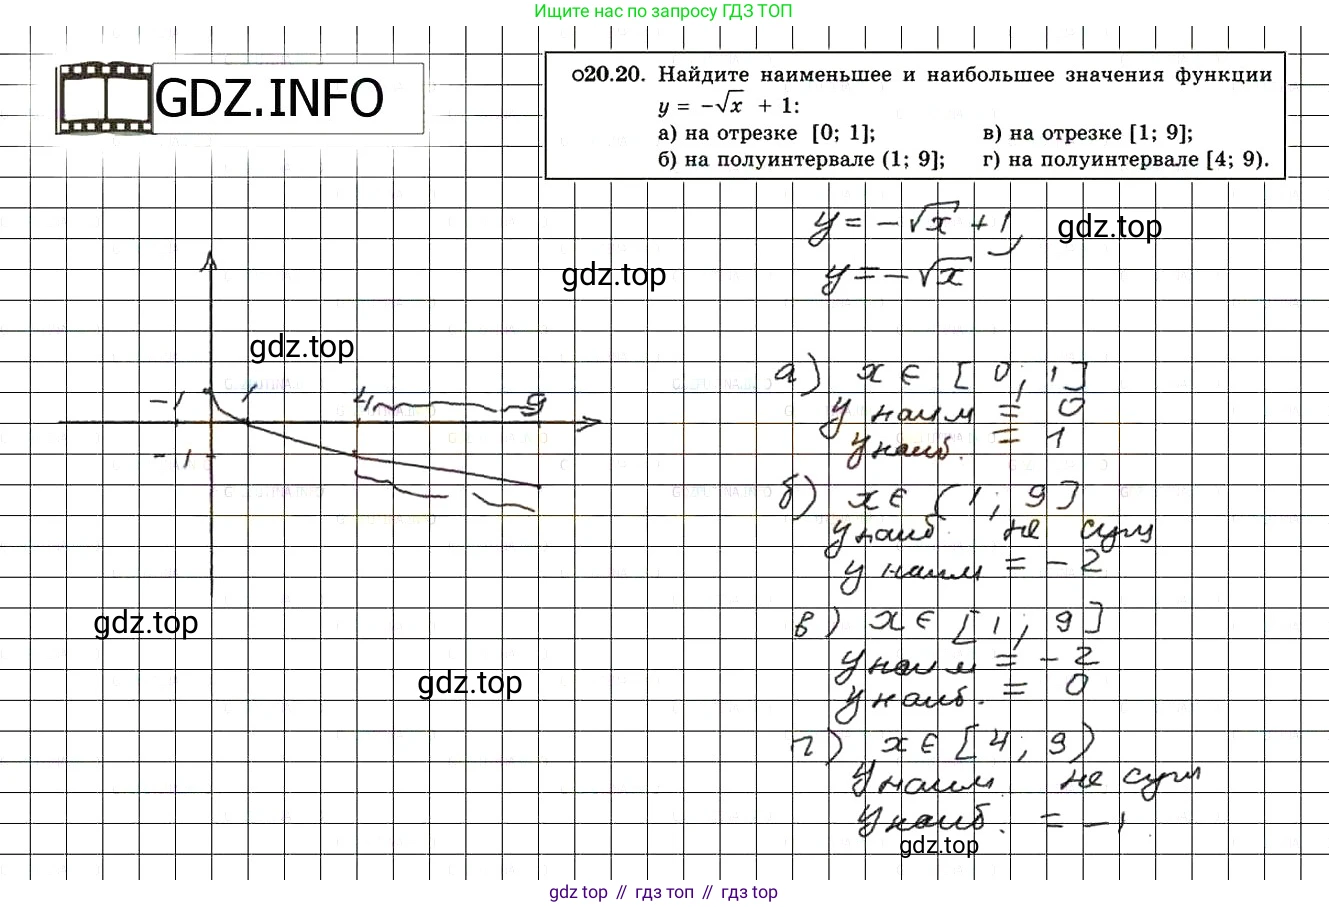 Ищите нас по запросу ГДЗ ТОП
GDZ.INFO
20.20. Найдите наименьшее и наибольшее значения функции
y = −√x + 1:
а) на отрезке [0; 1];
в) на отрезке [1; 9];
б) на полуинтервале (1; 9];
г) на полуинтервале [4; 9).
y = −√x + 1,
gdz.top
y = −√x
gdz.top
gdz.top
−1 1 4 9
−1
а) x ∈ [0; 1]
y наим = 0
y наиб. = 1
б) x ∈ (1; 9]
y наиб. не сущ
y наим = −2
gdz.top
в) x ∈ [1; 9]
y наим = −2
gdz.top
y наиб. = 0
г) x ∈ [4; 9)
y наим не сущ
y наиб. = −1
gdz.top
gdz top // гдз топ // гдз top